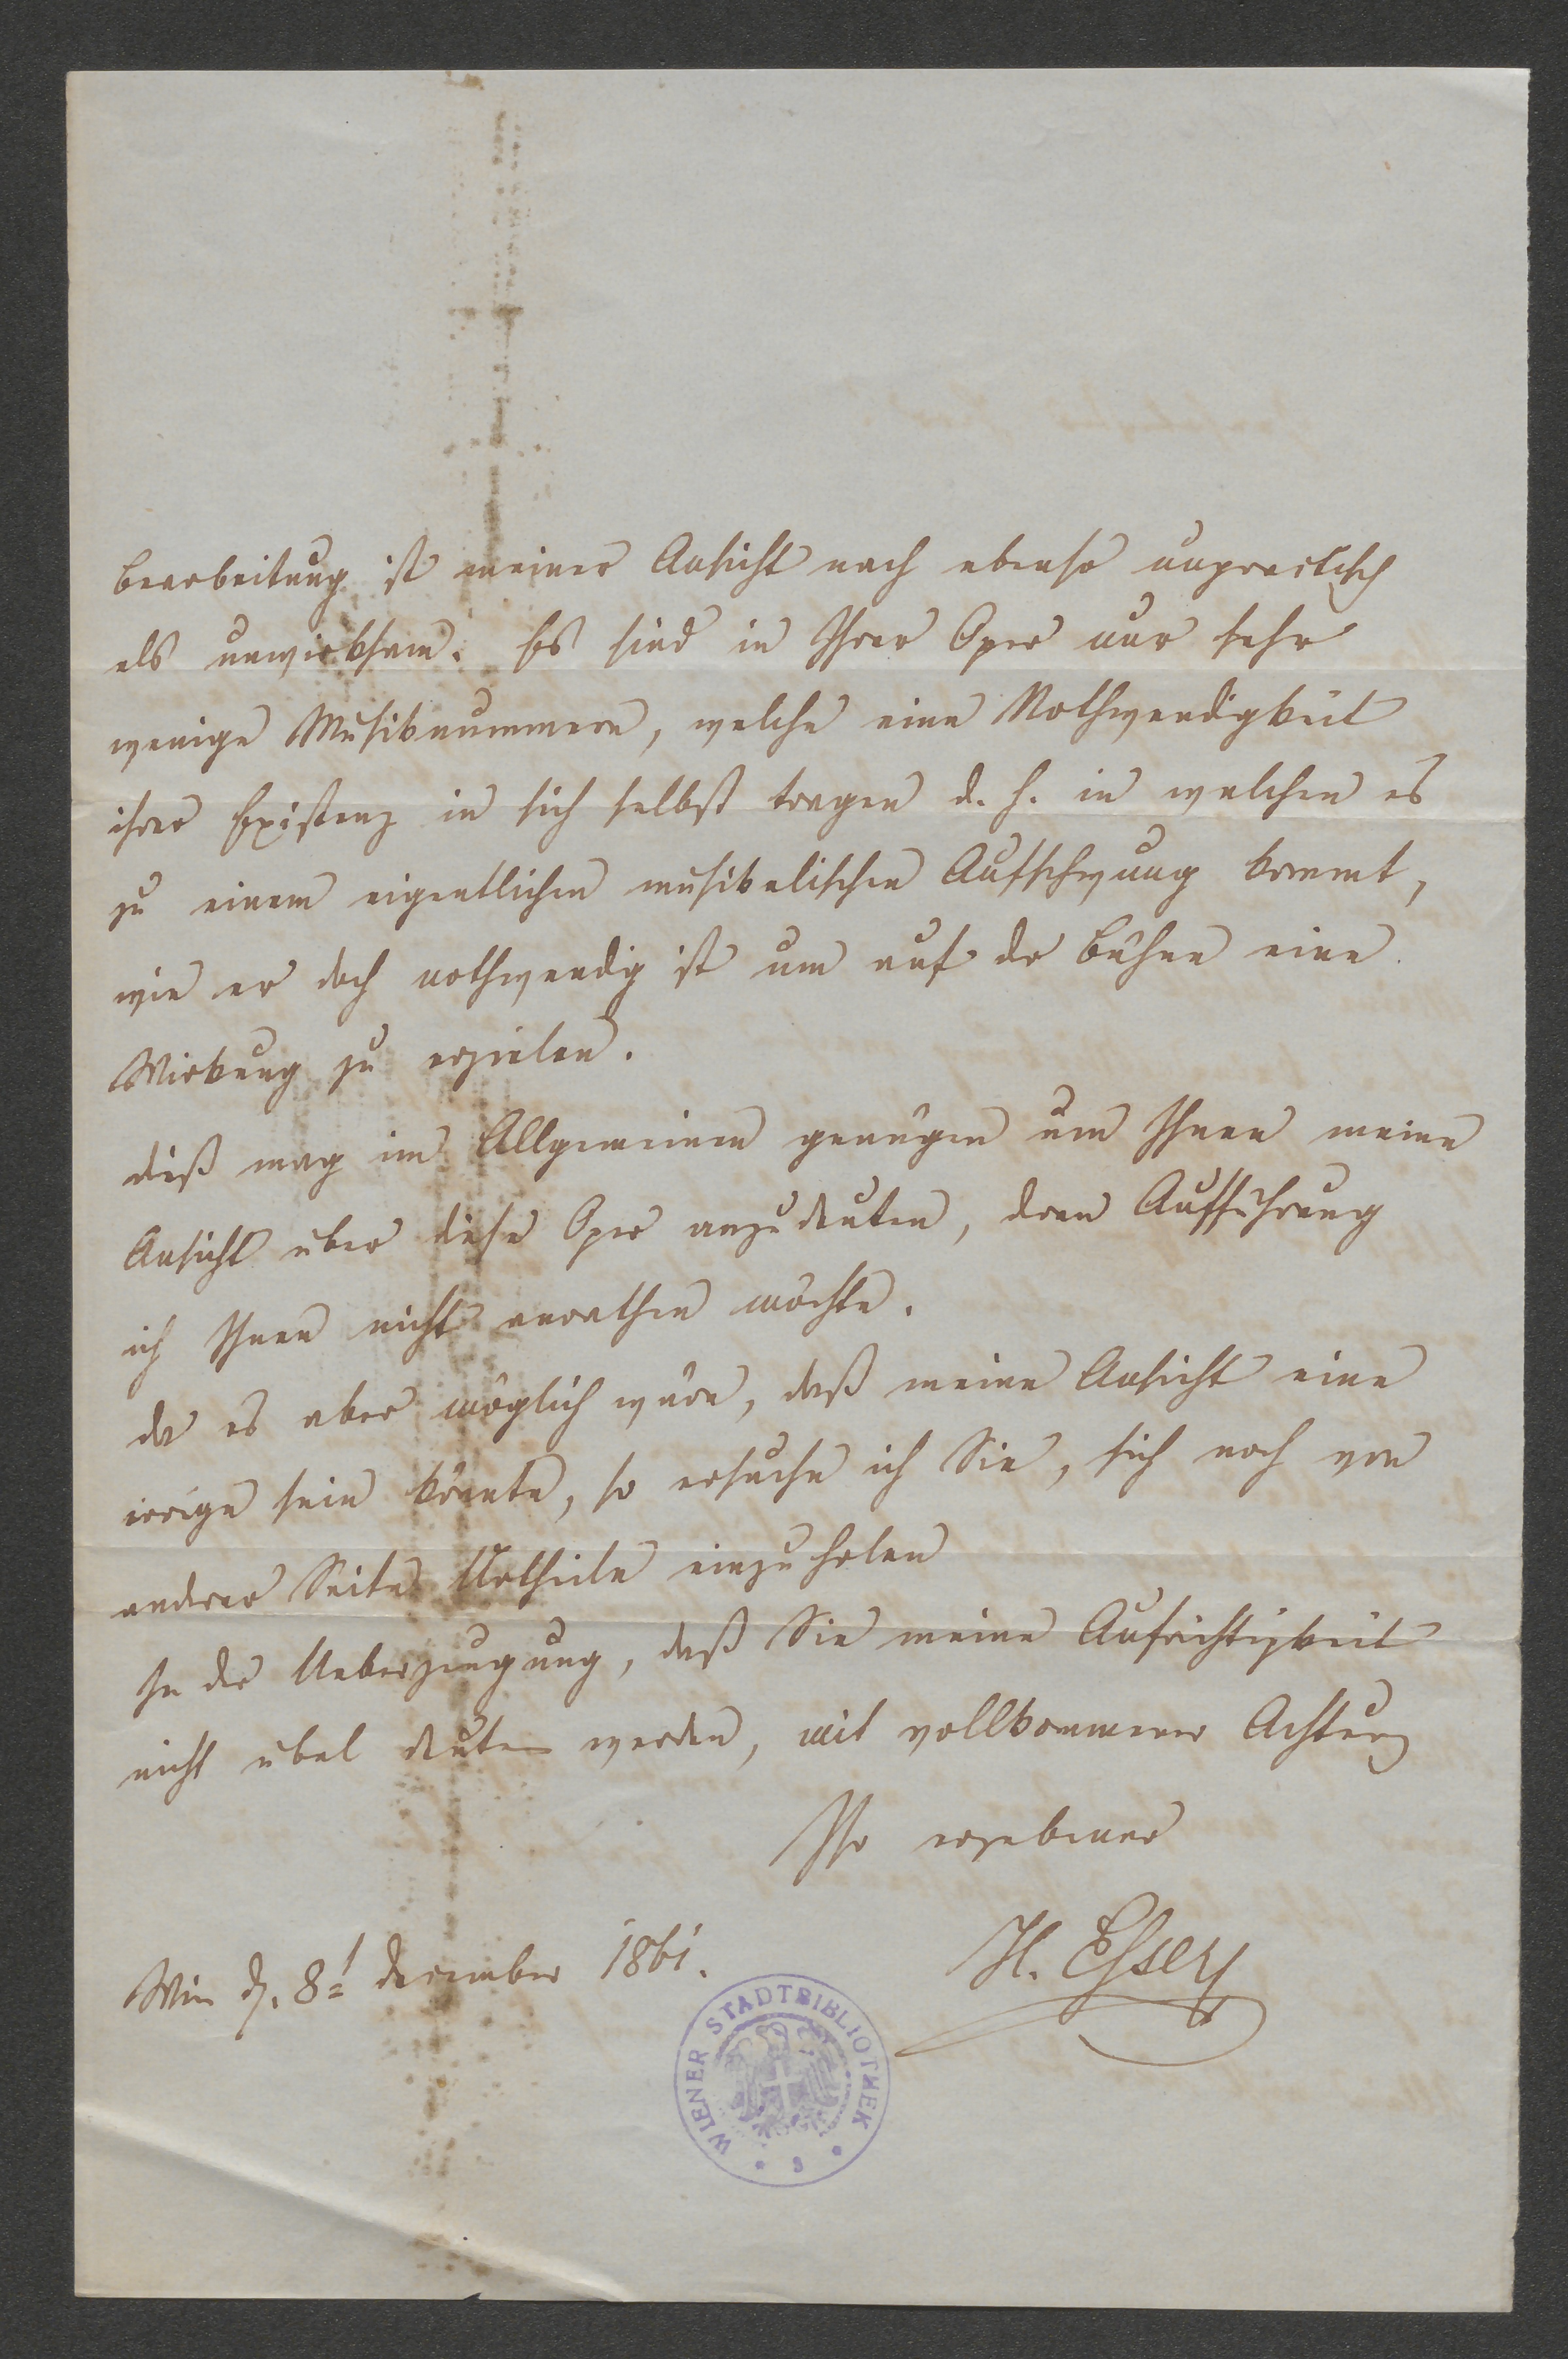 bearbeitung ist meiner Ansicht nach ebenso unpractisch
als unwirksam. Es sind in Ihrer Oper nur sehr
wenige Musiknummern, welche eine Nothwendigkeit
ihrer Existenz in sich selbst tragen d. h. in welchen es
zu einem eigentlichen musikalischen Aufschwung kommt,
wie er doch nothwendig ist um auf der Bühne eine
Wirkung zu erzielen.
Dieß mag im Allgemeinen genügen um Ihnen meine
Ansicht über diese Oper anzudeuten, deren Aufführung
ich Ihnen nicht anrathen möchte.
Da es aber möglich wäre, daß meine Ansicht eine
irrige sein könnte, so ersuche ich Sie, sich noch von
anderer Seite Urtheile einzuholen
In der Ueberzeugung, daß Sie meine Aufrichtigkeit
nicht übel deuten werden, mit vollkommener Achtung
Ihr ergebener
H. Esser
Wien d. 8t December 1861.
WIENER STADTBIBLIOTHEK